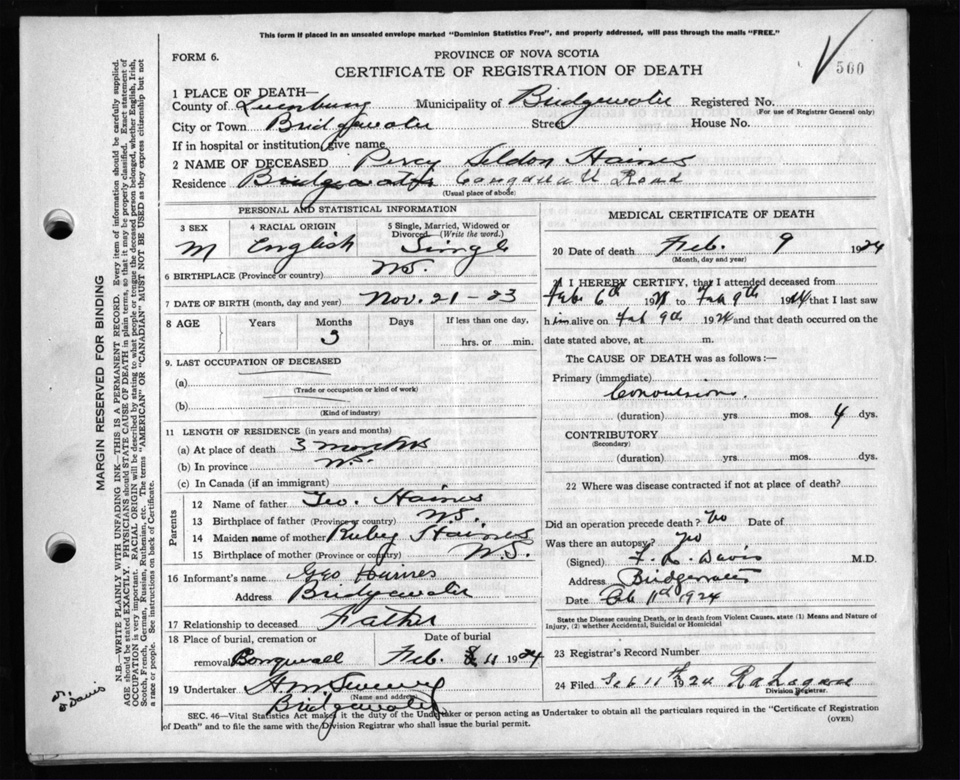 This form if placed in an unsealed envelope marked "Dominion Statistics Free", and properly addressed, will pass through the mails "FREE."
FORM 6.
PROVINCE OF NOVA SCOTIA
CERTIFICATE OF REGISTRATION OF DEATH
560
1 PLACE OF DEATH—
County of Lunenburg Municipality of Bridgewater Registered No.
(For use of Registrar General only)
City or Town Bridgewater Street House No.
If in hospital or institution, give name
2 NAME OF DECEASED Percy Seldon Haines
Residence Bridgewater Road
(Usual place of abode)
PERSONAL AND STATISTICAL INFORMATION
3 SEX M
4 RACIAL ORIGIN English
5 Single, Married, Widowed or Divorced. (Write the word.) Single
6 BIRTHPLACE (Province or country) N.S.
7 DATE OF BIRTH (month, day and year) Nov. 21-23
8 AGE Years Months Days If less than one day,
3 hrs. or min.
9. LAST OCCUPATION OF DECEASED
(a)
(Trade or occupation or kind of work)
(b)
(Kind of industry)
11 LENGTH OF RESIDENCE (in years and months)
(a) At place of death 3 months
(b) In province N.S.
(c) In Canada (if an immigrant)
Parents
12 Name of father Geo. Haines
13 Birthplace of father (Province or country) N.S.
14 Maiden name of mother Ruby Haines
15 Birthplace of mother (Province or country) N.S.
16 Informant's name Geo Haines
Address Bridgewater
17 Relationship to deceased Father
18 Place of burial, cremation or Date of burial
removal Feb. 11 1924
19 Undertaker
(Name and address)
Bridgewater
MEDICAL CERTIFICATE OF DEATH
20 Date of death Feb. 9 1924
(Month, day and year)
21 I HEREBY CERTIFY, that I attended deceased from
Feb. 6th 192 to Feb 9th 1924 that I last saw
him alive on Feb 9th 1924 and that death occurred on the
date stated above, at m.
The CAUSE OF DEATH was as follows:—
Primary (immediate)
Convulsions.
(duration) yrs. mos. 4 dys.
CONTRIBUTORY
(Secondary)
(duration) yrs. mos. dys.
22 Where was disease contracted if not at place of death?
Did an operation precede death? No Date of
Was there an autopsy? No
(Signed) F. R. Davis M.D.
Address Bridgewater
Date Feb 11th 1924
State the Disease causing Death, or in death from Violent Causes, state (1) Means and Nature of
Injury, (2) whether Accidental, Suicidal or Homicidal
23 Registrar's Record Number
24 Filed Feb 11th 1924
Division Registrar.
SEC. 46—Vital Statistics Act makes it the duty of the Undertaker or person acting as Undertaker to obtain all the particulars required in the "Certificate of Registration
of Death" and to file the same with the Division Registrar who shall issue the burial permit.
(OVER)
MARGIN RESERVED FOR BINDING
N.B.—WRITE PLAINLY WITH UNFADING INK—THIS IS A PERMANENT RECORD. Every item of information should be carefully supplied.
AGE should be stated EXACTLY. PHYSICIANS should STATE CAUSE OF DEATH in plain terms, so that it may be properly classified. Exact statement of
OCCUPATION is very important. RACIAL ORIGIN will be described by stating to what people or tongue the deceased person belonged, whether English, Irish,
Scotch, French, German, Russian, Ruthenian, etc. The terms "AMERICAN" OR "CANADIAN" MUST NOT BE USED as they express citizenship but not
a race or people. See instructions on back of Certificate.
Dr. Davis